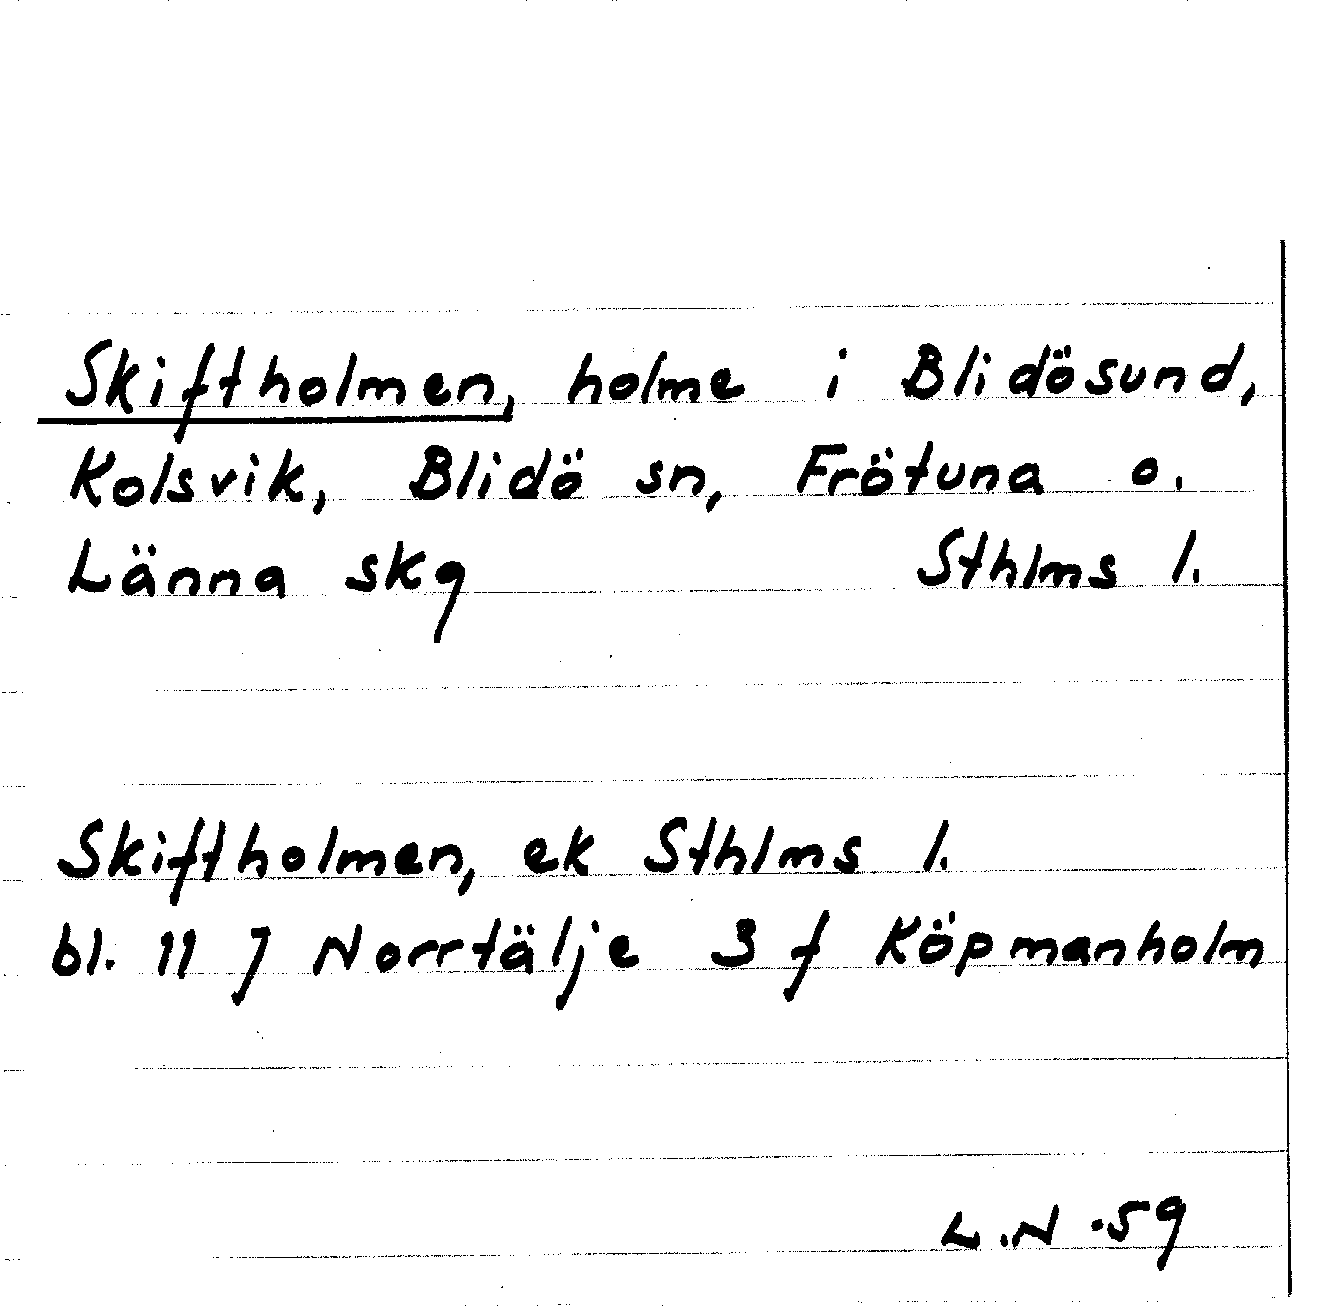 Skiftholmen, holme i Blidösund,
Kolsvik, Blidö sn, Frötuna o.
Länna skg Sthlms l.
Skiftholmen, ek Sthlms l.
bl. 11 J Norrtälje 3 f Köpmanholm
L.N -59